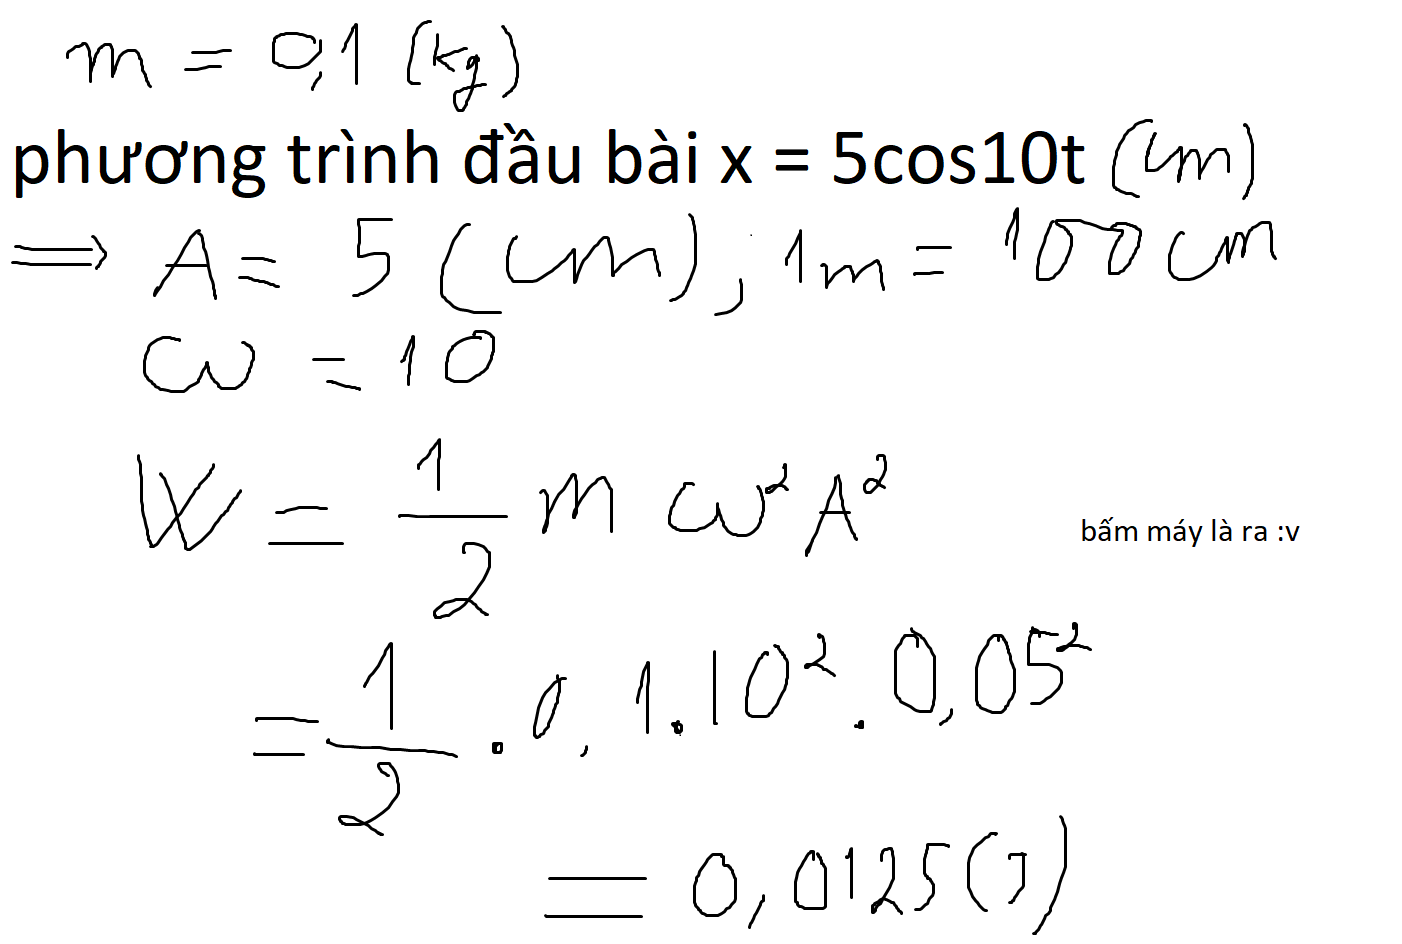 m = 0,1 (kg)
phương trình đầu bài x = 5cos10t (cm)
⇒ A = 5 (cm), 1m = 100cm
ω = 10
W = 1/2 m ω² A²
bấm máy là ra :v
= 1/2 . 0,1.10² . 0,05²
= 0,0125(J)